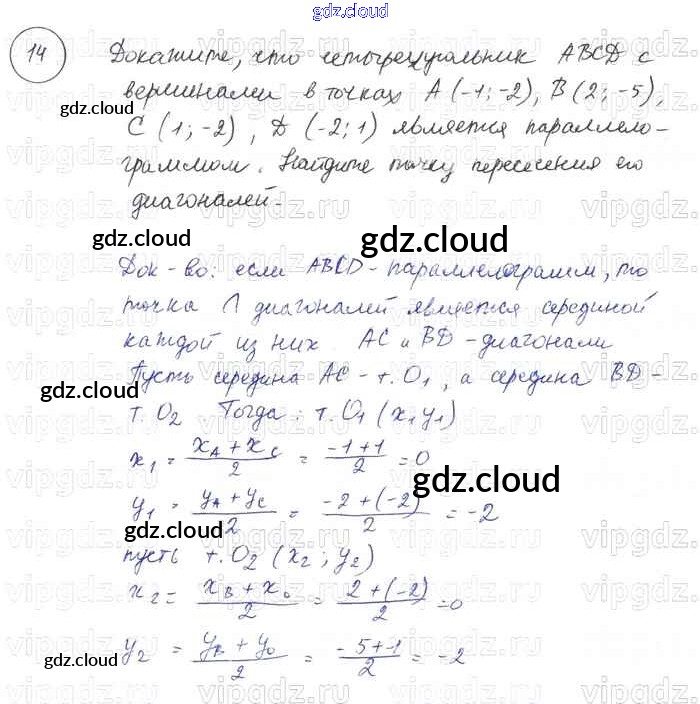 gdz.cloud
14 Докажите, что четырехугольник ABCD с
вершинами в точках A (-1; -2), B (2; -5),
C (1; -2), D (-2; 1) является параллело-
граммом. Найдите точку пересечения его
диагоналей.
Док-во: если ABCD - параллелограмм, то
точка ∩ диагоналей является серединой
каждой из них. AC и BD - диагонали
Пусть середина AC - т. O₁, а середина BD -
т. O₂ Тогда: т. O₁ (x₁ y₁)
x₁ = (x_A + x_C)/2 = (-1+1)/2 = 0
y₁ = (y_A + y_C)/2 = (-2+(-2))/2 = -2
пусть т. O₂ (x₂; y₂)
x₂ = (x_B + x_D)/2 = (2+(-2))/2 = 0
y₂ = (y_B + y_D)/2 = (-5+1)/2 = -2